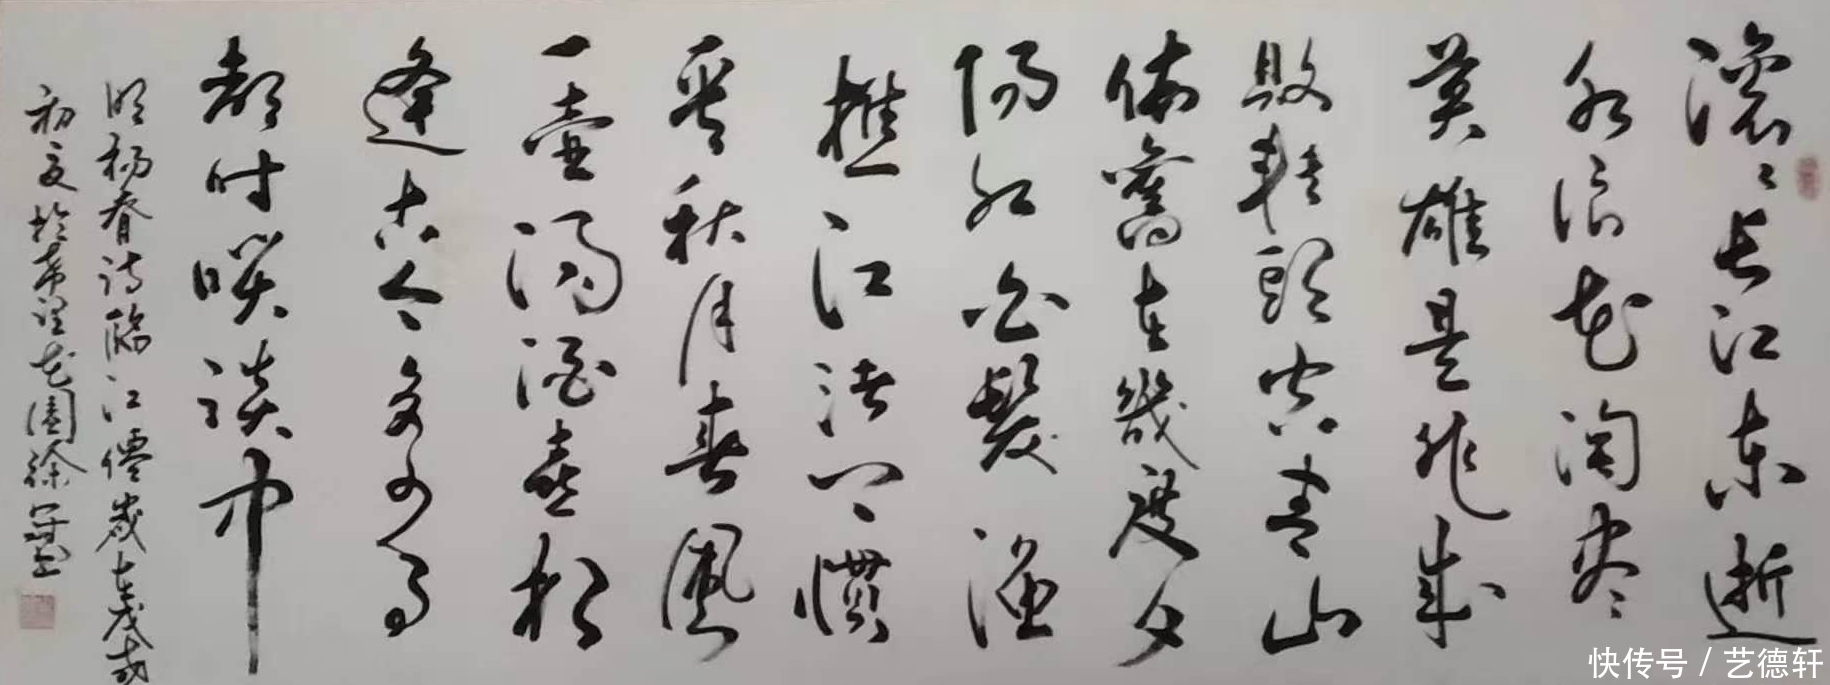 滚滚长江东逝
水浪花淘尽
英雄是非成
败转头空青山
依舊在幾度夕
陽红白髮渔
樵江渚上惯
看秋月春風
一壶濁酒喜相
逢古今多少事
都付咲谈中
明杨昚诗临江僊歲在戊戌
初夏於希望花園徐
快传号 / 艺德轩